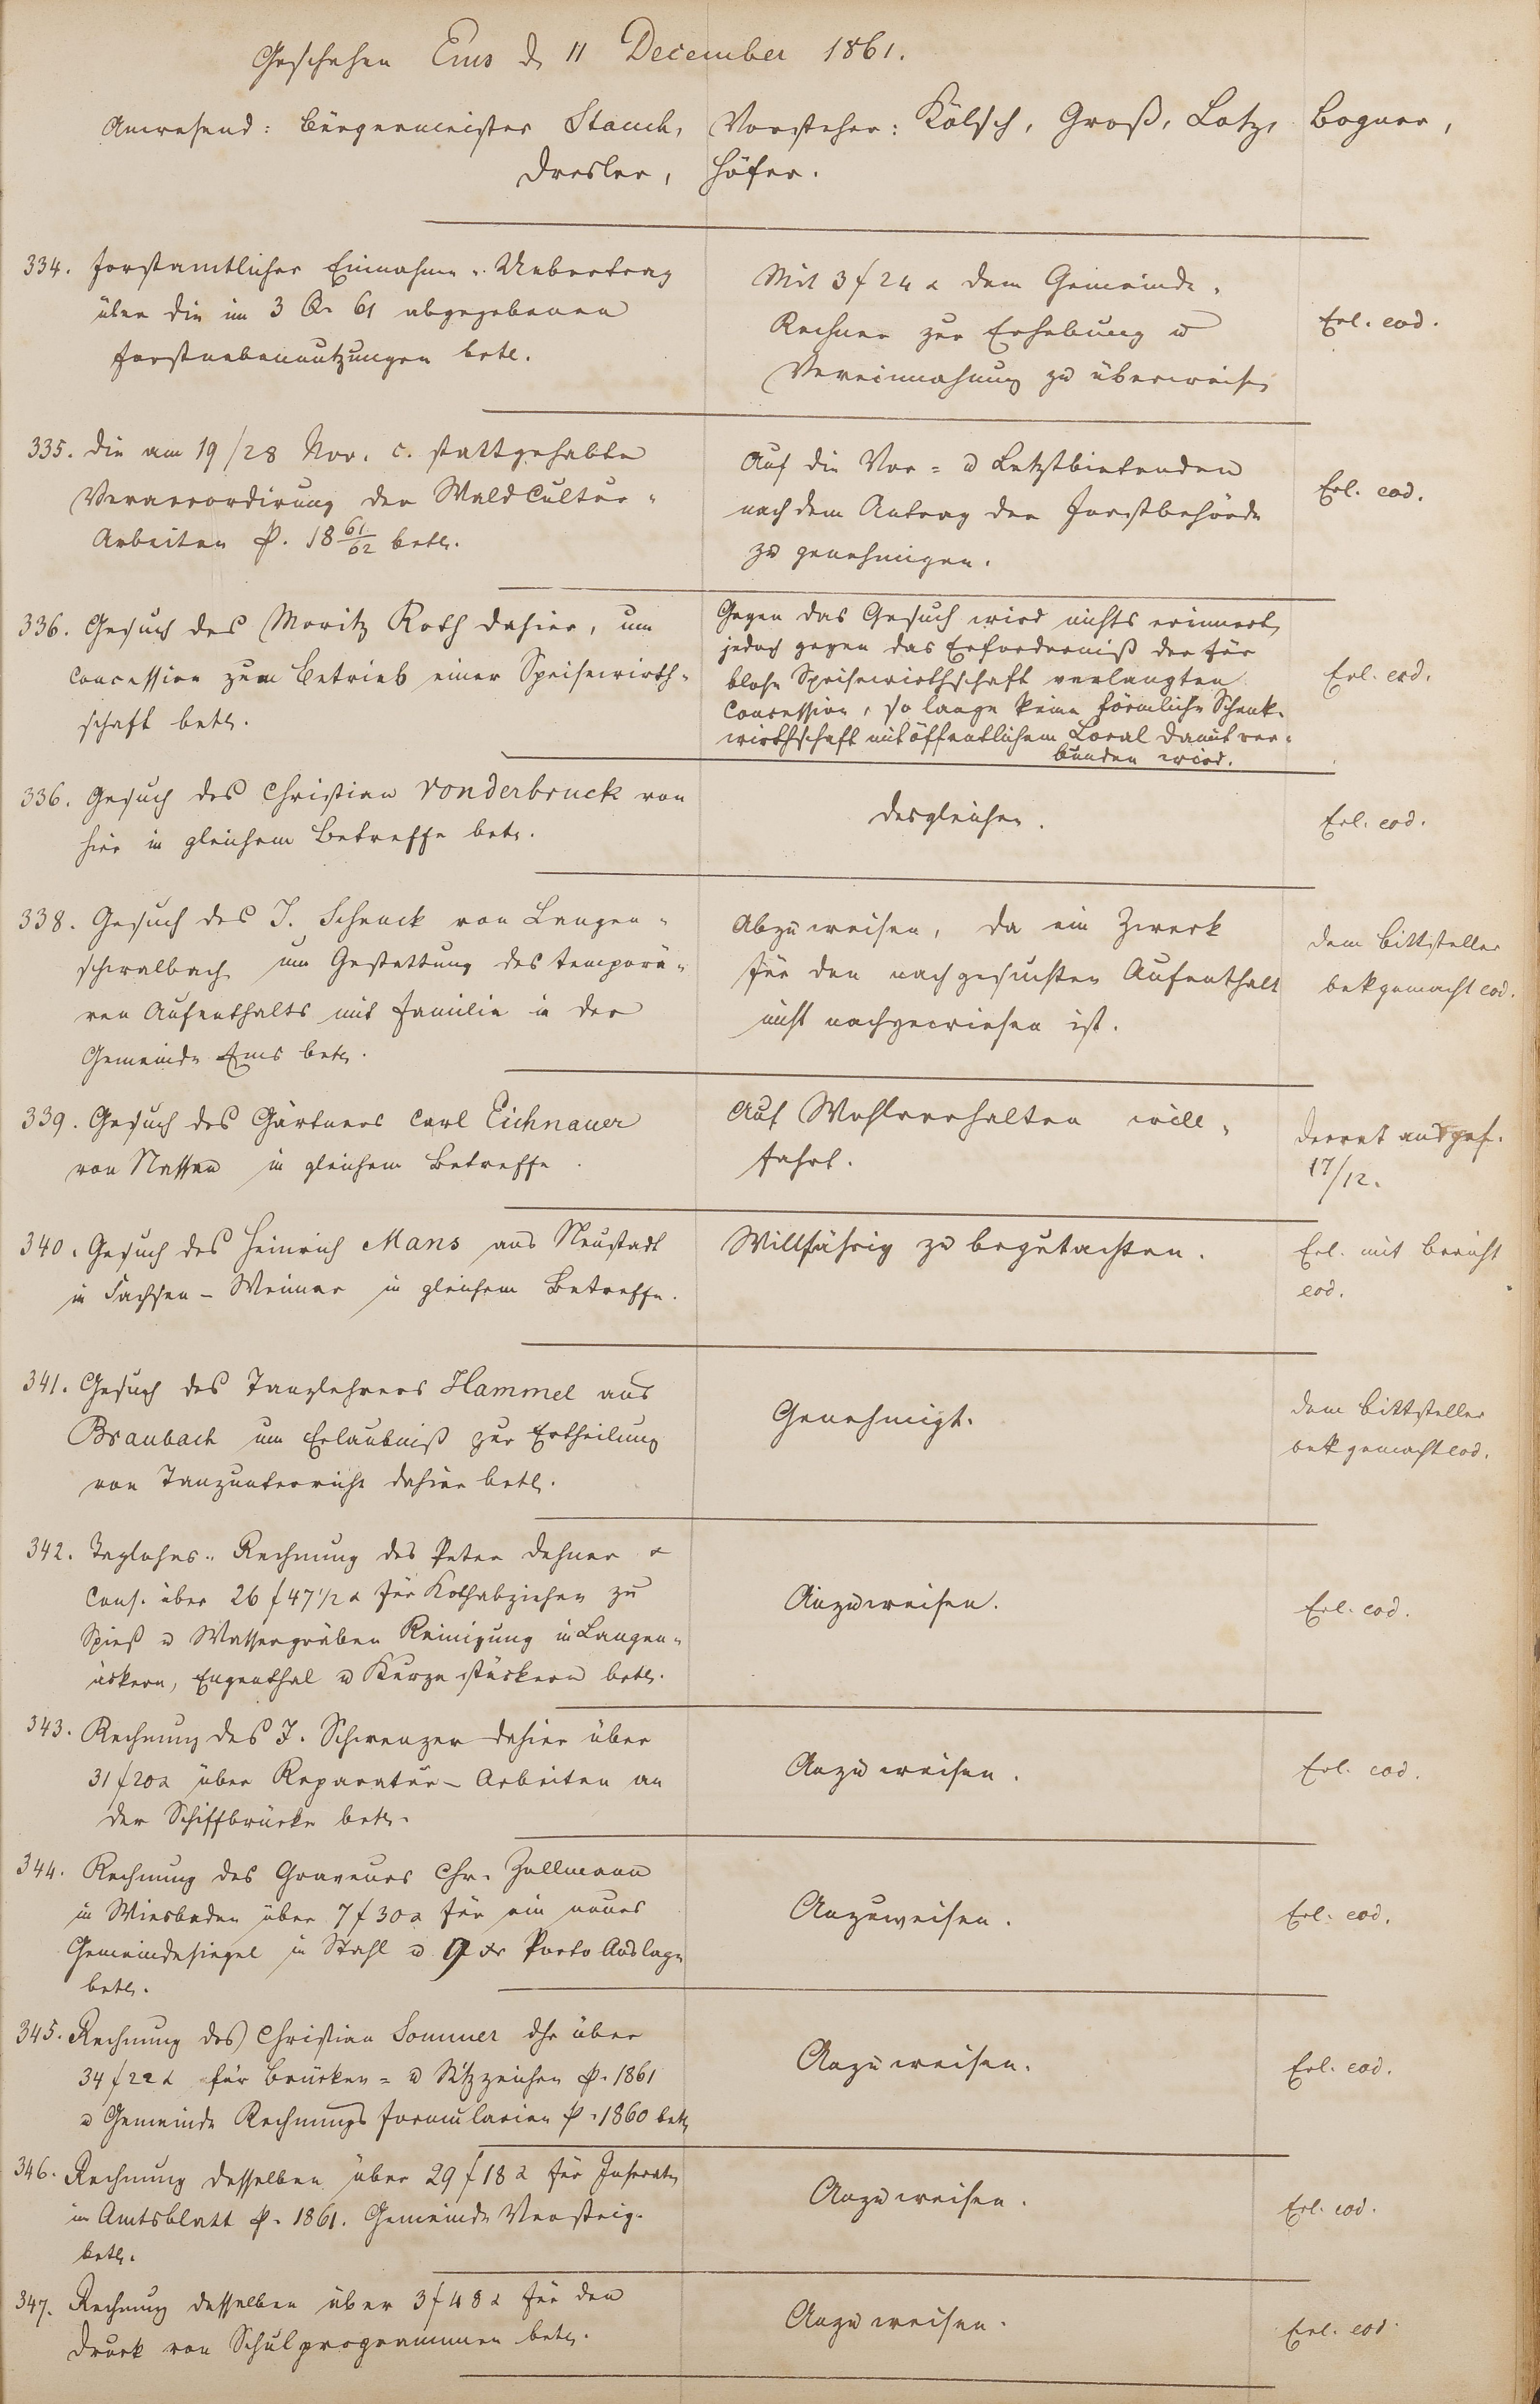 Geschehen Ems d. 11 December 1861.
Anwesend: Bürgermeister Stauch, Vorsteher: Kölsch, Groß, Lotz, Bogner,
Dresler, Höfer.
334. Forstamtlicher Einnahme-Uebertrag
über die im 3 Qr 61 abgegebenen
Forstnebennutzungen betr.
Mit 3 f 24 x dem Gemeinde-
Rechner zur Erhebung u
Vereinnahmung zu überweisen
Erl. eod.
335. Die am 19/28 Nov. c. stattgehabte
Veraccordirung der Waldcultur-
Arbeiten p. 18 61/62 betr.
Auf die Vor- u Letztbietenden
nach dem Antrag der Forstbehörde
zu genehmigen.
Erl. eod.
336. Gesuch des Moritz Roth dahier, um
Concession zum Betrieb einer Speisewirth-
schaft betr.
Gegen das Gesuch wird nichts erinnert,
jedoch gegen das Erforderniß der für
blose Speisewirthschaft verlangten
Concession, so lange keine förmliche Schenk-
wirthschaft mit öffentlichem Local damit ver-
bunden wird.
Erl. eod.
336. Gesuch des Christian Vonderbruck von
hier in gleichem Betreffe betr.
Desgleichen.
Erl. eod.
338. Gesuch des J. Schenck von Langen-
schwalbach um Gestattung des temporä-
ren Aufenthalts mit Familie in der
Gemeinde Ems betr.
Abzuweisen, da ein Zweck
für den nachgesuchten Aufenthalt
nicht nachgewiesen ist.
Dem Bittsteller
bekgemacht eod.
339. Gesuch des Gärtners Carl Eichnauer
von Nassau in gleichem Betreffe.
Auf Wohlverhalten will-
fahrt.
Decret ausgef.
17/12.
340. Gesuch des Heinrich Mans aus Neustadt
in Sachsen-Weimar in gleichem Betreffe.
Willfährig zu begutachten.
Erl. mit Bericht
eod.
341. Gesuch des Tanzlehrers Hammel aus
Braubach um Erlaubniß zur Ertheilung
von Tanzunterricht dahier betr.
Genehmigt.
Dem Bittsteller
bekgemacht eod.
342. Taglohns-Rechnung des Peter Dehner &
Cons. über 26 f 47 1/2 x für Kothabziehen zu
Spieß u Wassergräben Reinigung in Langen-
äckern, Engenthal u Kurze stückern betr.
Anzuweisen.
Erl. eod.
343. Rechnung des J. Schwenzer dahier über
31 f 20 x über Reparatur-Arbeiten an
der Schiffbrücke betr.
Anzuweisen.
Erl. eod.
344. Rechnung des Graveurs Chr. Zollmann
in Wiesbaden über 7 f 30 x für ein neues
Gemeindesiegel in Stahl u 9 xr Porto Auslage
betr.
Anzuweisen.
Erl. eod.
345. Rechnung des Christian Sommer dhr über
34 f 22 x für Brücken- u Sitzzeichen p. 1861
u Gemeinde Rechnungs Formularien p. 1860 betr
Anzuweisen.
Erl. eod.
346. Rechnung desselben über 29 f 18 x für Inserate
im Amtsblatt p. 1861. Gemeinde Versteig.
betr.
Anzuweisen.
Erl. eod.
347. Rechnung desselben über 3 f 48 x für den
Druck von Schulprogrammen betr.
Anzuweisen.
Erl. eod.